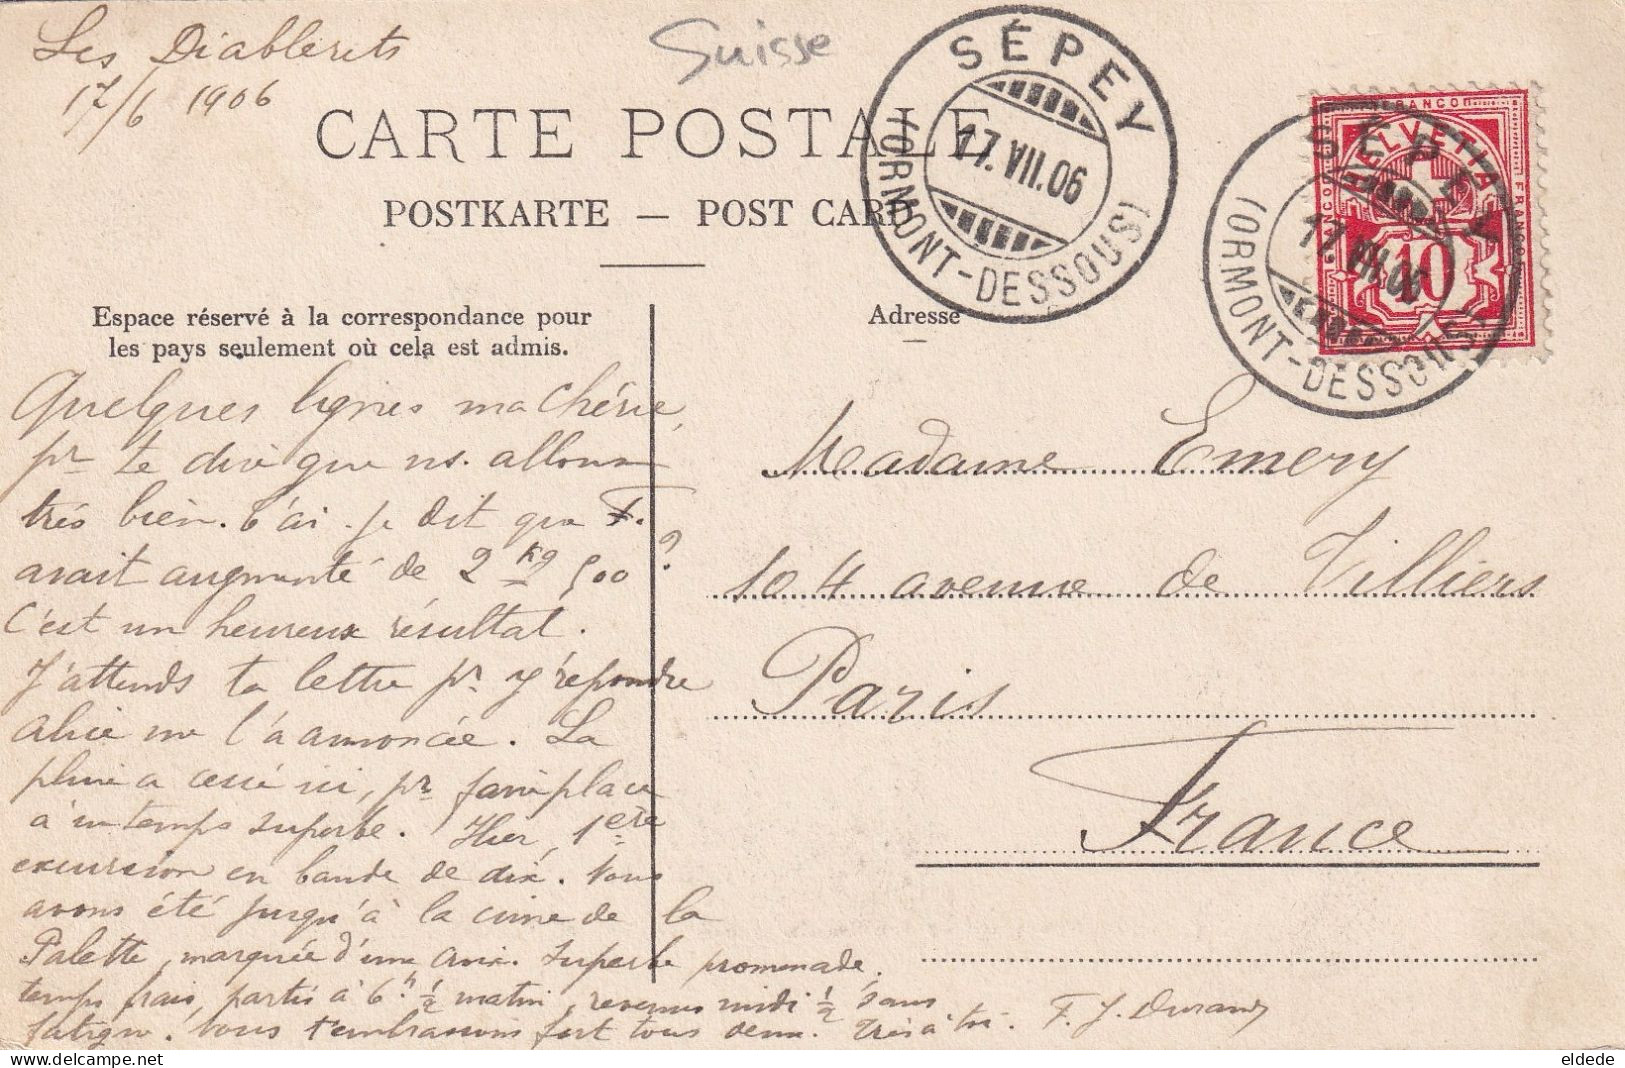 Les Diablerets
17/6 1906
Suisse
CARTE POSTALE
POSTKARTE — POST CARD
SÉPEY
17.VII.06
(ORMONT-DESSOUS)
FRANCO
HELVETIA
10
SÉPEY
17.VII.06
(ORMONT-DESSOUS)
Espace réservé à la correspondance pour
les pays seulement où cela est admis.
Adresse
Quelques lignes ma Chérie,
pr te dire que ns. allons
très bien. t'ai-je dit que F.
avait augmenté de 2 kg 500?
C'est un heureux résultat.
J'attends ta lettre pr. y répondre
alice me l'a annoncée. La
pluie a cessé ici, pr faire place
à un temps superbe. Hier, 1ère
excursion en bande de dix. Nous
avons été jusqu'à la cime de la
Palette, marquée d'une croix. Superbe promenade,
temps frais, partis à 6h. ½ matin, revenus midi ½ sans
fatigue. Nous t'embrassons fort tous deux. Très à toi. F. J. Durand
Madame Emery
104 avenue de Villiers
Paris
France
eldede